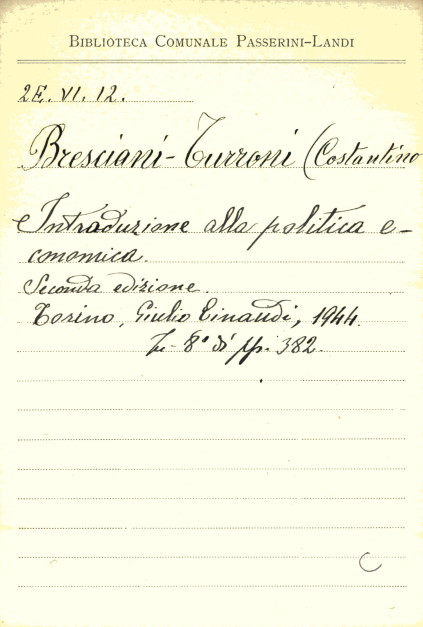 BIBLIOTECA COMUNALE PASSERINI-LANDI
2E. VI. 12.
Bresciani-Turroni (Costantino
Introduzione alla politica e-
conomica.
Seconda edizione.
Torino, Giulio Einaudi, 1944.
In-8° di pp. 382.